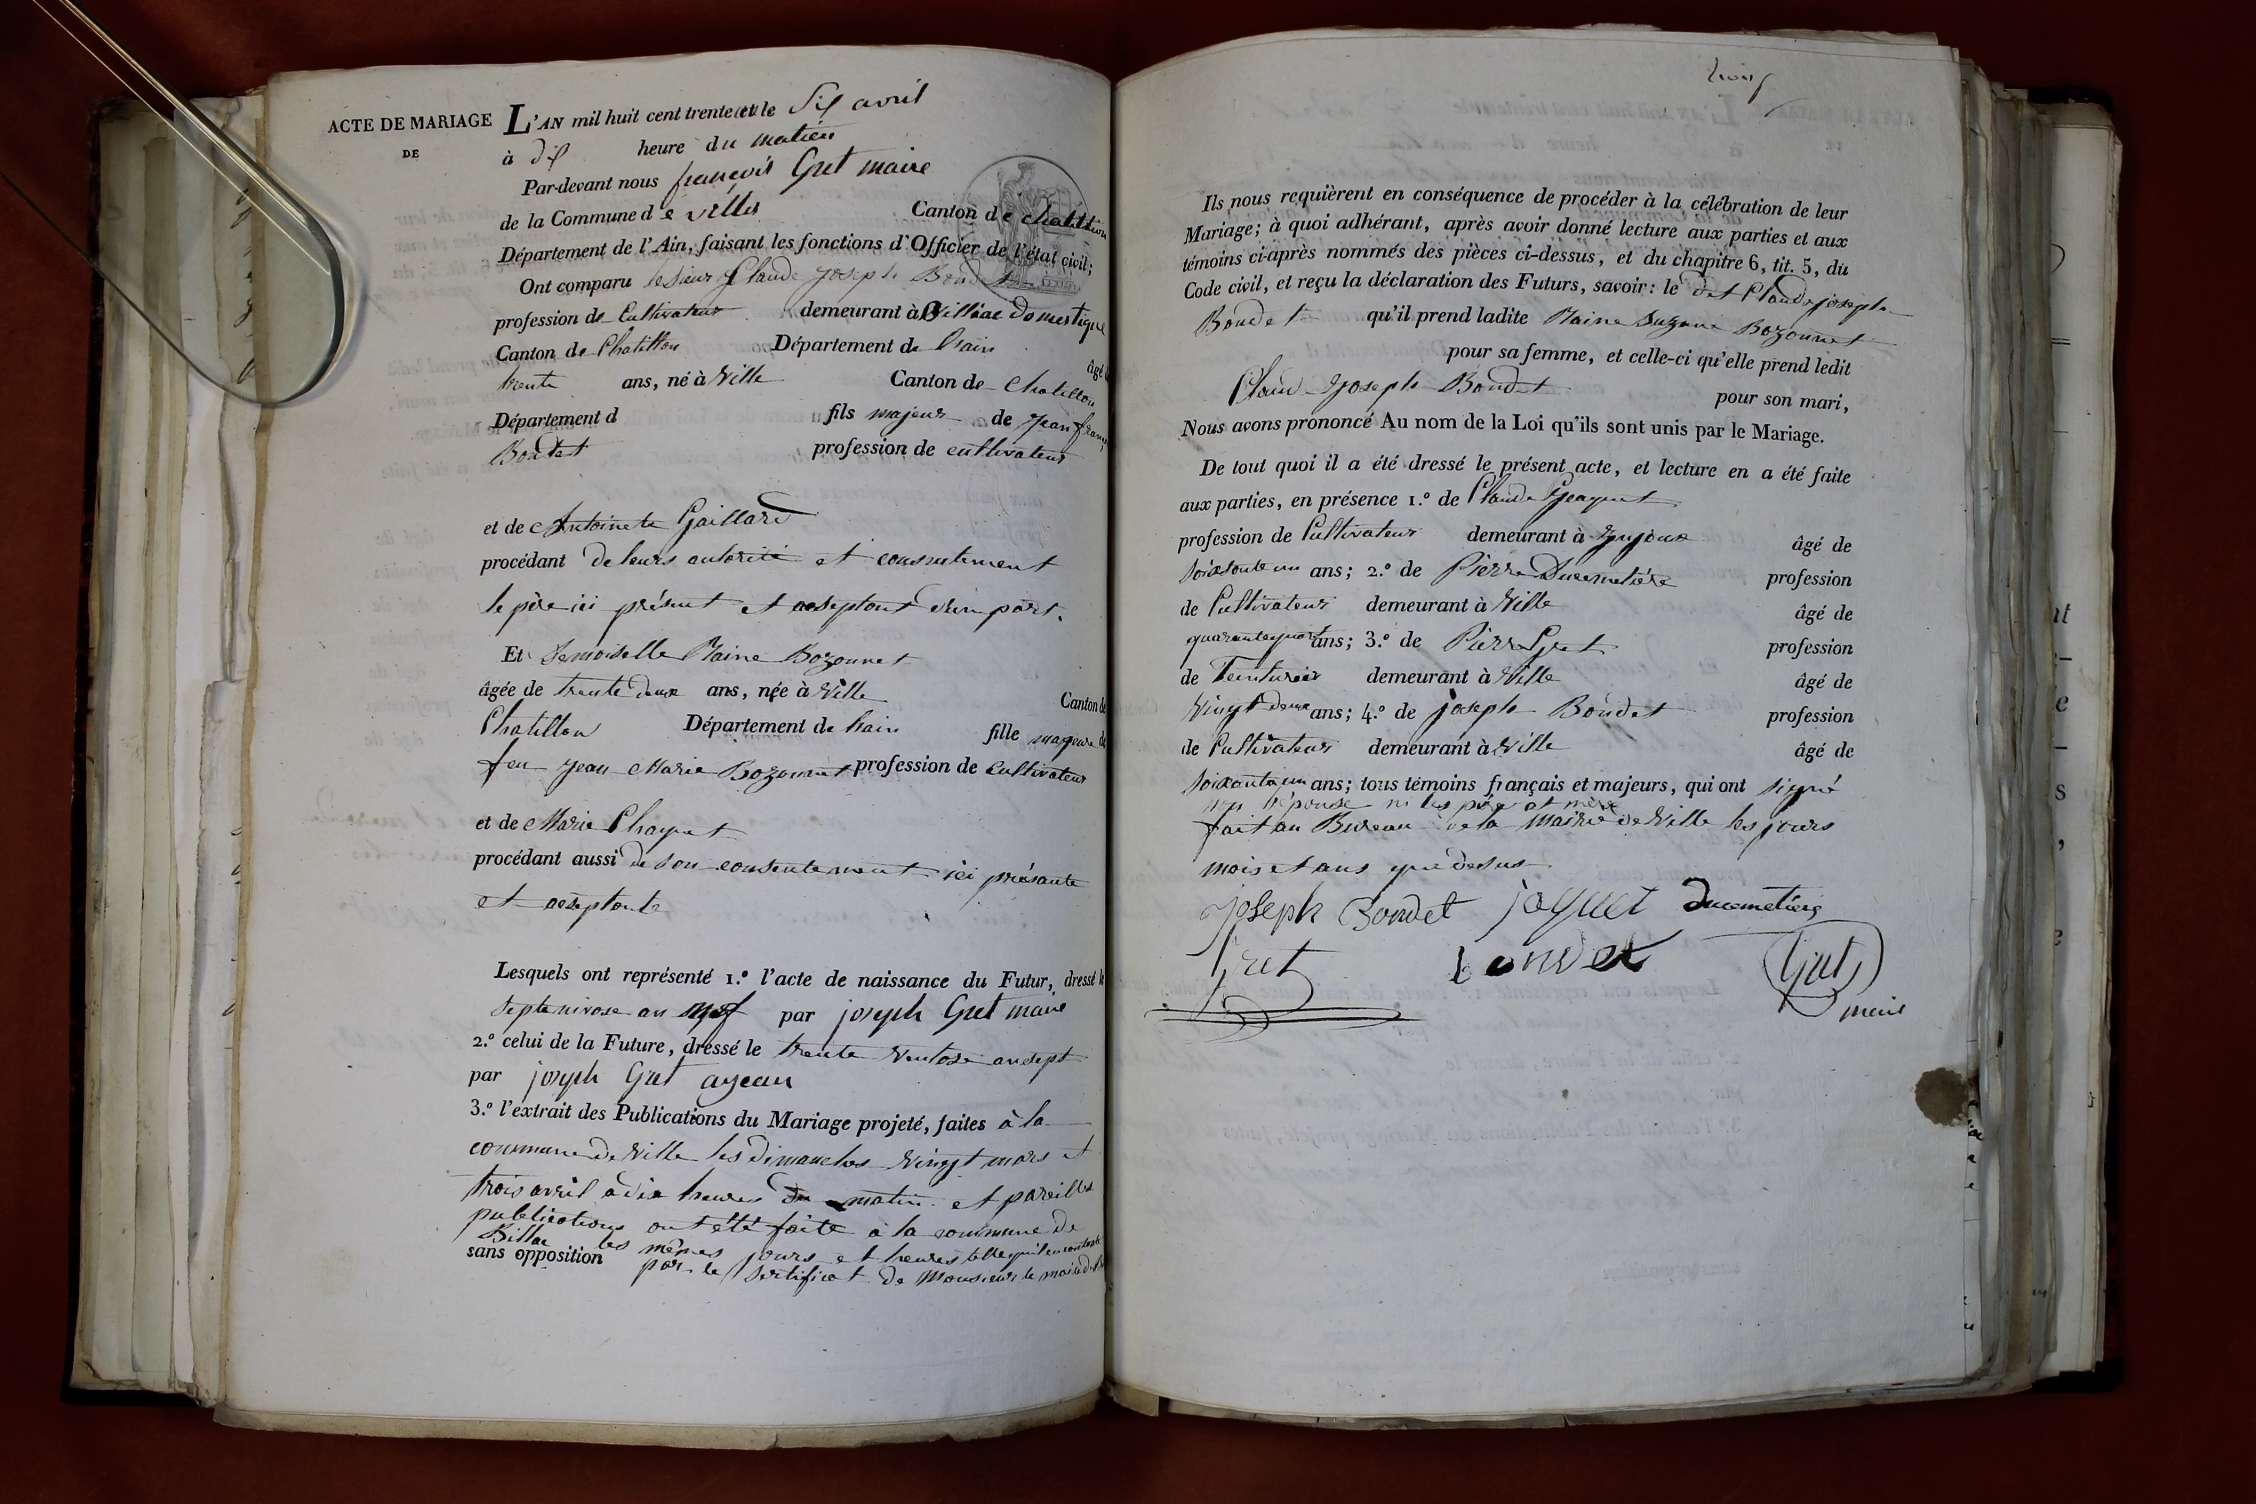 ACTE DE MARIAGE
DE
L'AN mil huit cent trente et un le Six avril
à dix heure du matien
Par-devant nous françois Gret maire
de la Commune de villes Canton de chatillion
Département de l'Ain, faisant les fonctions d'Officier de l'état civil;
Ont comparu le sieur Claude Joseph Boudet
profession de Cultivateur demeurant à Billiac domestique
Canton de Chatillon Département de lain âgé de
trente ans, né à Ville Canton de Chatillon
Département d fils majeur de Jean françois
Boudet profession de cultivateur
et de Antoinete Gaillard
procédant de leurs autorité et consentement
le père ici présent et aceptant d'une part.
Et demoiselle Maine Bozonnet
âgée de trente deux ans, née à Ville Canton de
Chatillon Département de lain fille majeure de
feu Jean Marie Bozonnet profession de Cultivateur
et de Marie Chapuet
procédant aussi de son consentement ici présante
et aceptante
Lesquels ont représenté 1.º l'acte de naissance du Futur, dressé le
septe nivose an neuf par joseph Gret maire
2.º celui de la Future, dressé le trente Ventose an sept
par joseph Gret agean
3.º l'extrait des Publications du Mariage projeté, faites à la
commune de Ville les dimanches Vingt mars et
trois avril à dix heures du matin et pareilles
publications ont été faite à la commune de
Billiac les mêmes jours et heures telle qu'il en constate
sans opposition par le Sertificat de Monsieur le maire de
Ils nous requièrent en conséquence de procéder à la célébration de leur
Mariage; à quoi adhérant, après avoir donné lecture aux parties et aux
témoins ci-après nommés des pièces ci-dessus, et du chapitre 6, tit. 5, du
Code civil, et reçu la déclaration des Futurs, savoir: le dit Claude joseph
Boudet qu'il prend ladite Maine Suzanne Bozonnet
pour sa femme, et celle-ci qu'elle prend ledit
Claude Joseph Boudet pour son mari,
Nous avons prononcé Au nom de la Loi qu'ils sont unis par le Mariage.
De tout quoi il a été dressé le présent acte, et lecture en a été faite
aux parties, en présence 1.º de Claude Jeaquet
profession de Cultivateur demeurant à Injoux âgé de
soixante un ans; 2.º de Pierre Ducemetière profession
de Cultivateur demeurant à Ville âgé de
quarante quatre ans; 3.º de Pierre Gret profession
de Teinturier demeurant à Ville âgé de
Vingt deux ans; 4.º de joseph Boudet profession
de Cultivateur demeurant à Ville âgé de
soixante un ans; tous témoins français et majeurs, qui ont signé
non l'épouse ni les père et mère
fait au Bureau de la mairie de Ville les jours
mois et ans que desus
joseph Boudet jaquet Ducemetiere
Gret boudet Gret
maire